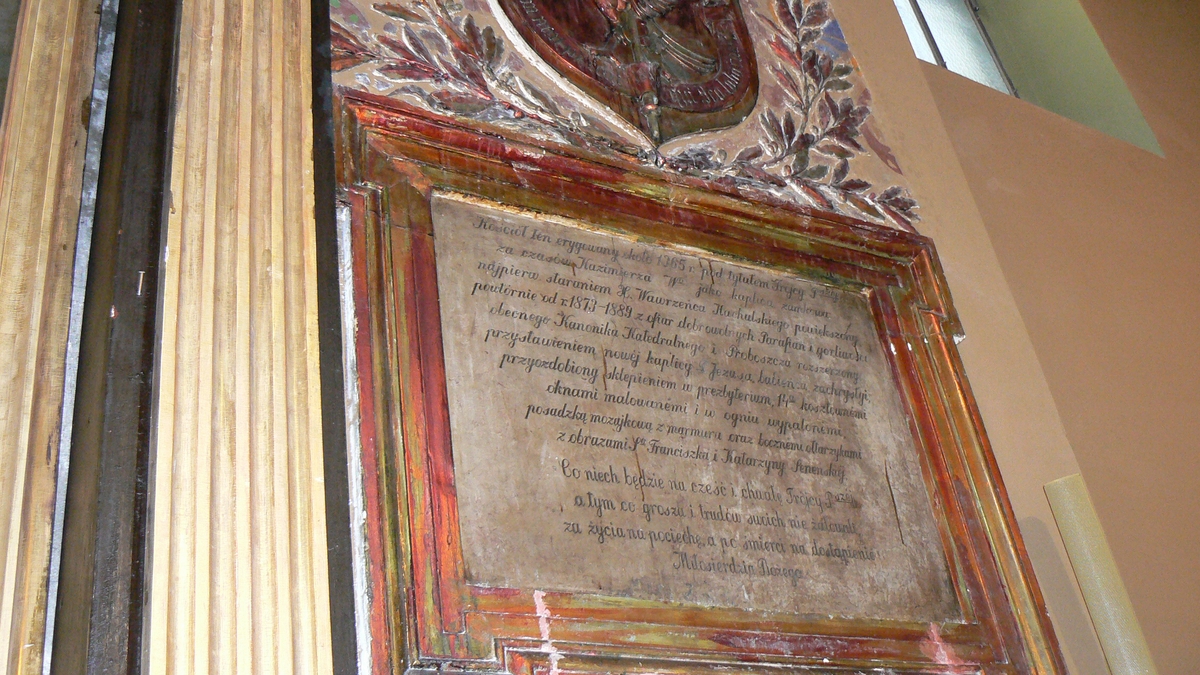 Kościół ten erygowany około 1365 r. pod tytułem Trójcy
za czasów Kazimierza jako kaplica zamkowa
najpierw staraniem X. Wawrzeńca powiększony,
powtórnie od r. 1873-1889 z ofiar dobrowolnych Parafian i gorliwości
obecnego Kanonika Katedralnego i Proboszcza rozszerzony
przystawieniem nowéj kaplicy zachrystyi,
przyozdobiony sklepieniem w prezbyterium, 14 kosztownémi
oknami malowanémi i w ogniu wypalonemi,
posadzką mozajkową z marmuru oraz bocznemi ołtarzykami
z obrazami Franciszka i Katarzyny Seneńskiéj
Co niech będzie na cześć i chwałę Trójcy
a tym co grosza i trudów swoich nie żałowali
za życia na pociechę, a po śmierci na dostąpienie
Miłosierdzia Bożego